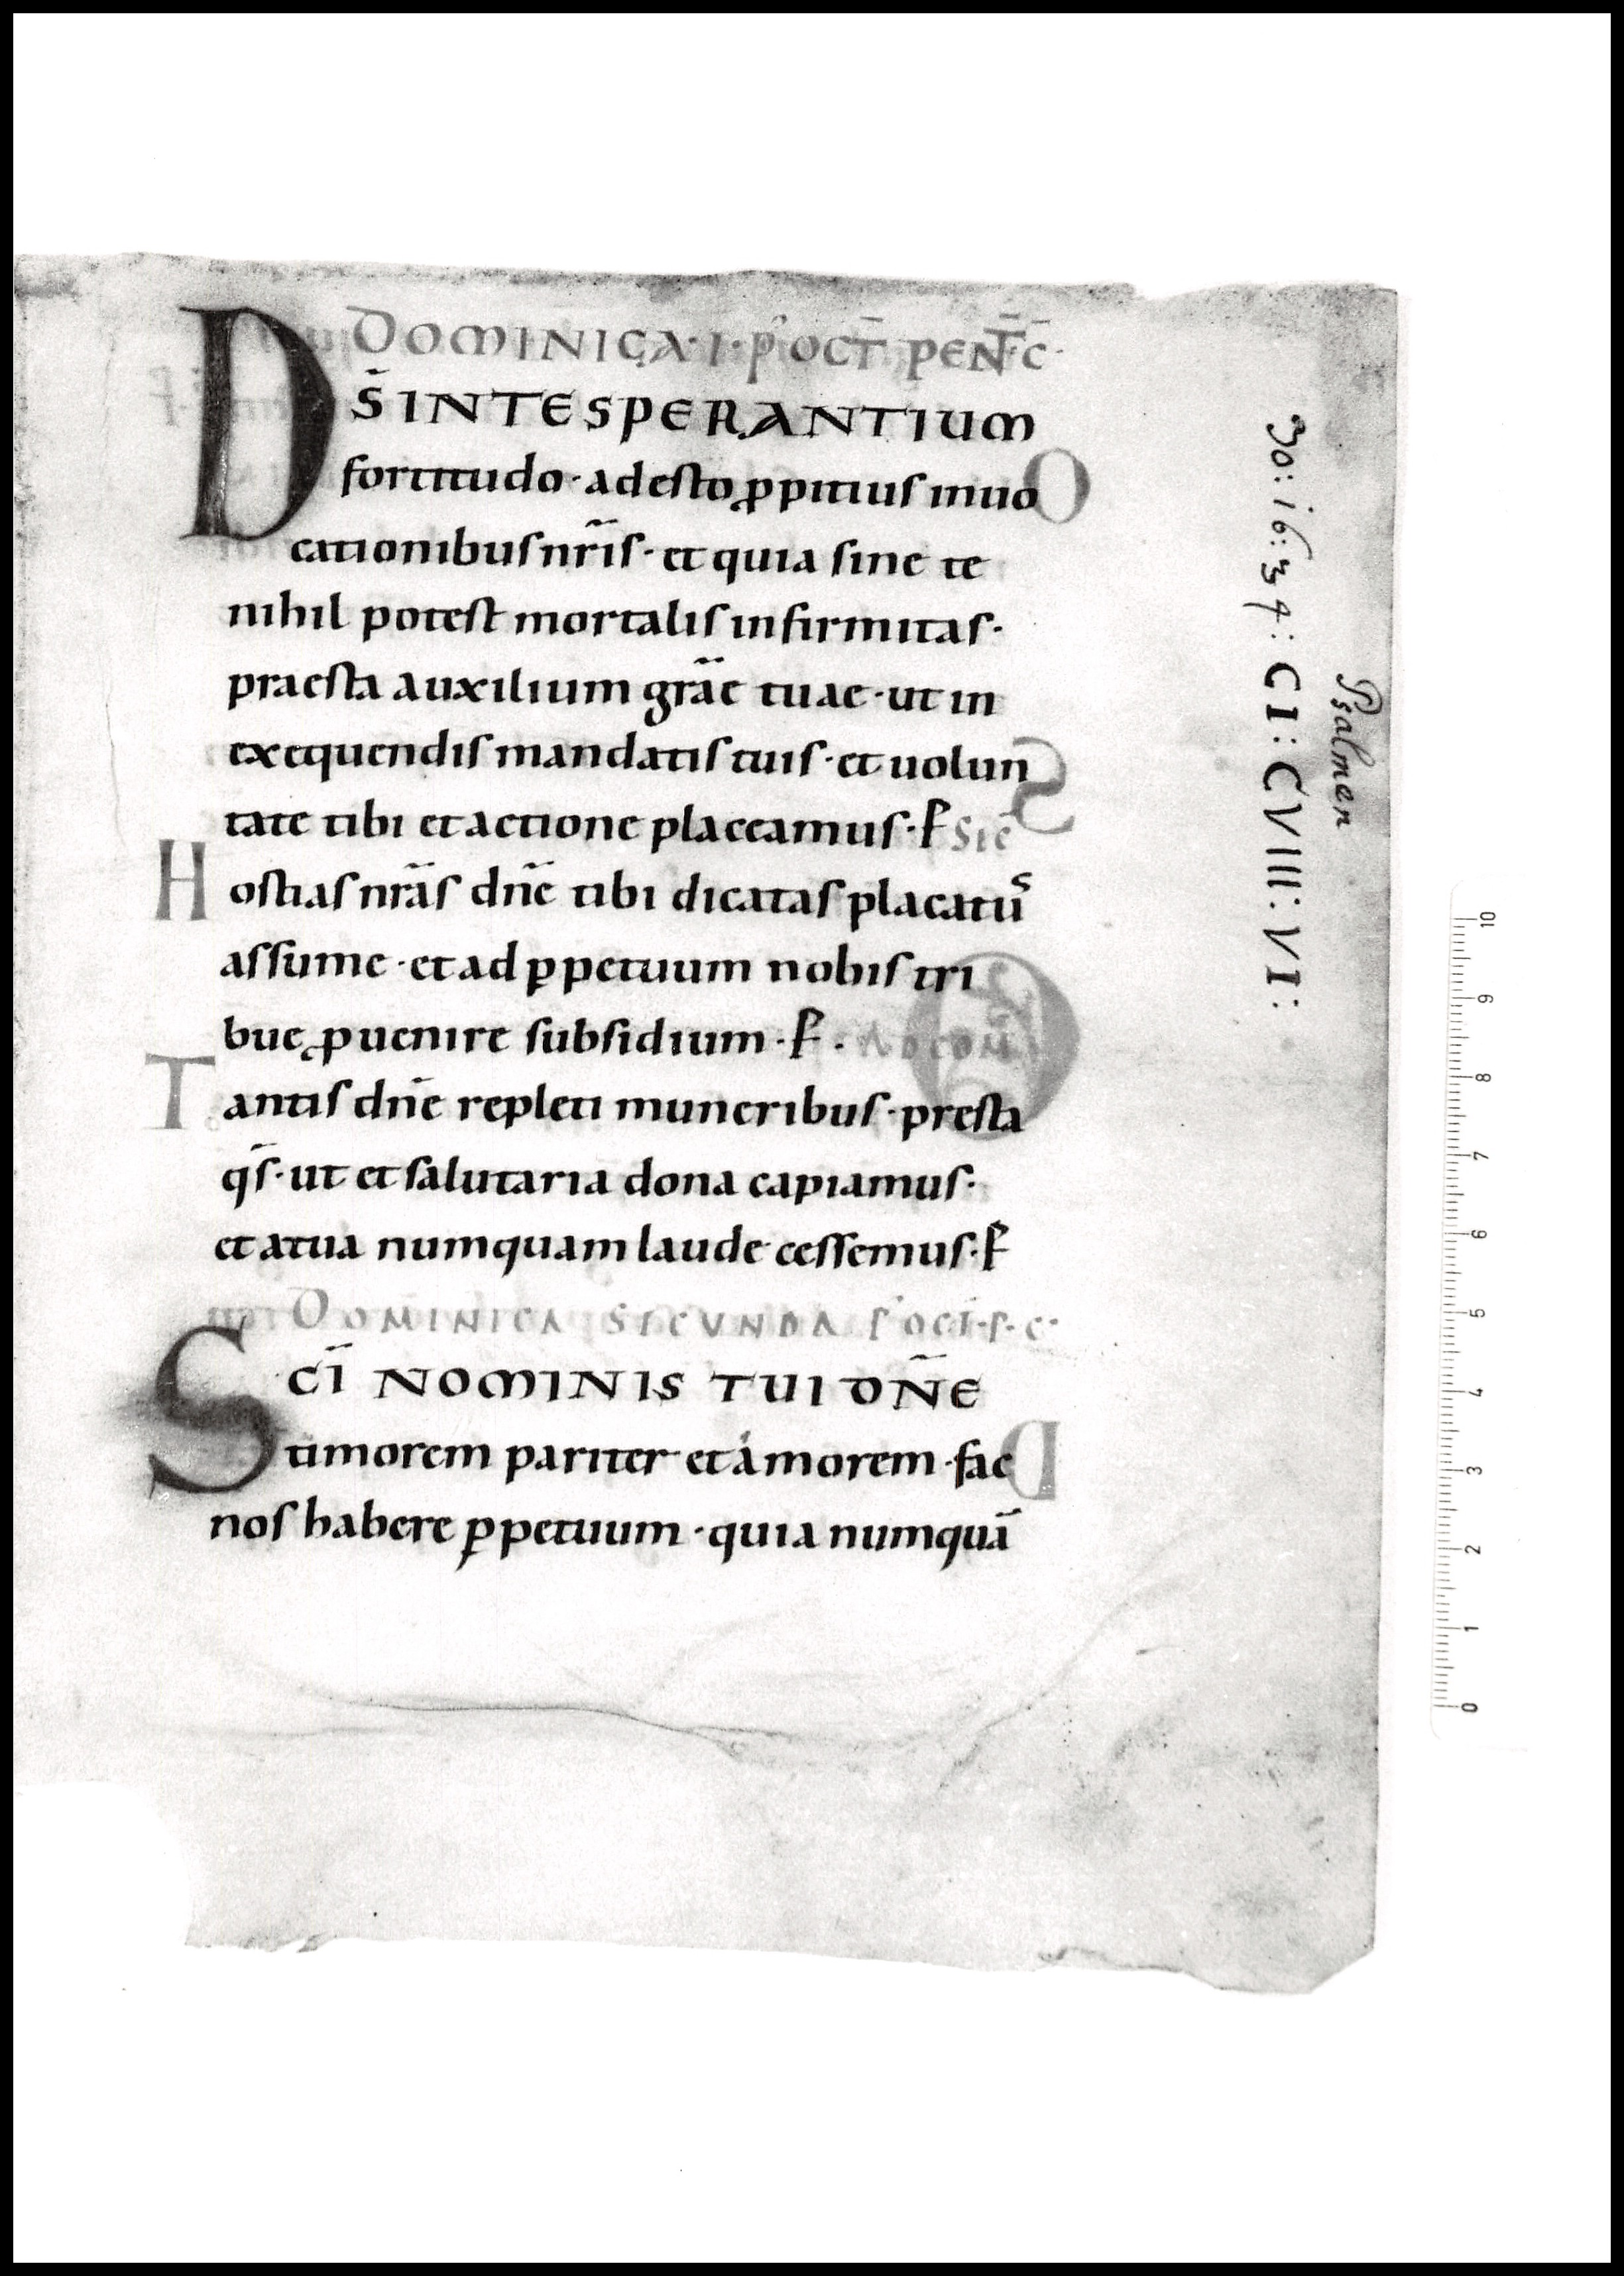 DOMINICA·I·P' OCT̄ PENT̄C̄·
DS̄ IN TE SPERANTIUM
fortitudo·adesto ꝓpitius inuo
cationibus nr̄is·et quia sine te
nihil potest mortalis infirmitas·
praesta auxilium gr̄ae tuae·ut in
exequendis mandatis tuis·et uolun
tate tibi et actione placeamus·P̄
Hostias nr̄as dn̄e tibi dicatas placatūs
assume·et ad ꝑpetuum nobis tri
bue ꝓuenire subsidium·P̄·
AD COM̄
Tantis dn̄e repleti muneribus·presta
qs̄·ut et salutaria dona capiamus·
et a tua numquam laude cessemus·P̄
DOMINICA SECUNDA P' OCT̄·P·C·
SCĪ NOMINIS TUI DN̄E
timorem pariter et amorem·fac
nos habere ꝑpetuum·quia numquā
30:16:34: CI: CVIII: VI:
Psalmen
10
9
8
7
6
5
4
3
2
1
0